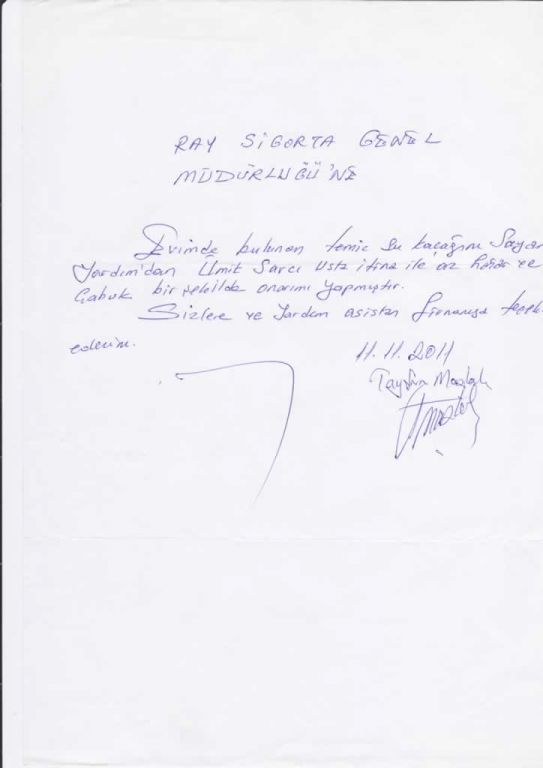 RAY SİGORTA GENEL
MÜDÜRLÜĞÜ'NE
Evimde bulunan temiz su kaçağını Sayın
Yardım'dan Ümit Sarcı Usta itina ile az hasar ve
Çabuk bir şekilde onarımı yapmıştır.
Sizlere ve Yardım asistan firmanıza
ederim.
11.11.2011